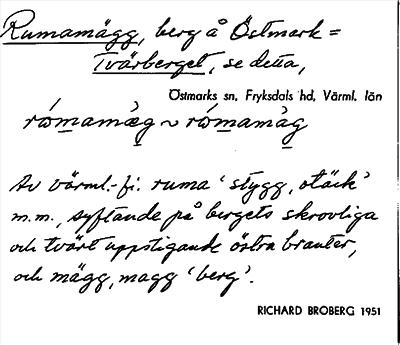 Rumamägg, berg å Östmark =
Tvärberget, se detta,
Östmarks sn, Fryksdals hd, Värml. län
rómamäg ~ rómamàg
Av värml.-fi. ruma 'stygg, otäck'
m.m., syftande på bergets skrovliga
och tvärt uppstigande östra branter,
och mägg, magg 'berg'.
RICHARD BROBERG 1951